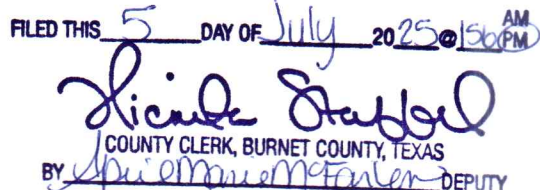 FILED THIS 5 DAY OF July 20 25 @ 156 AM
PM
COUNTY CLERK, BURNET COUNTY, TEXAS
BY April Marie McFarlen DEPUTY